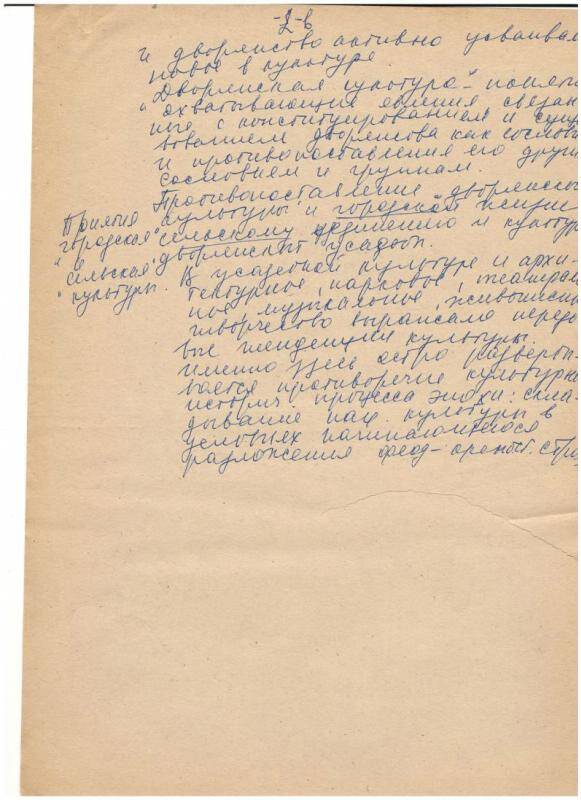 -2-в
и дворянство активно усваивал
новое в культуре.
"Дворянская культура" - понят
охватывающие явления связан
ные с конституированием и сущ
вованием дворянства как сослови
и противопоставления его други
сословием и группам.
Противопоставление дворянской
культуры и городской жизни
сельскому уединению и культур
дворянских усадьб.
Понятия
"городская"
и
"сельская"
культуры.
В усадебной культуре и архи-
тектурное, парковое, театрал
ное, музыкальное, живописн
творчество выражало передо
вые тенденции культуры.
Именно здесь остро разверты-
вается противоречие культурно
историч процесса эпохи: скла-
дывание нац. культуры в
условиях начинающегося
разложения феод-крепост. стро